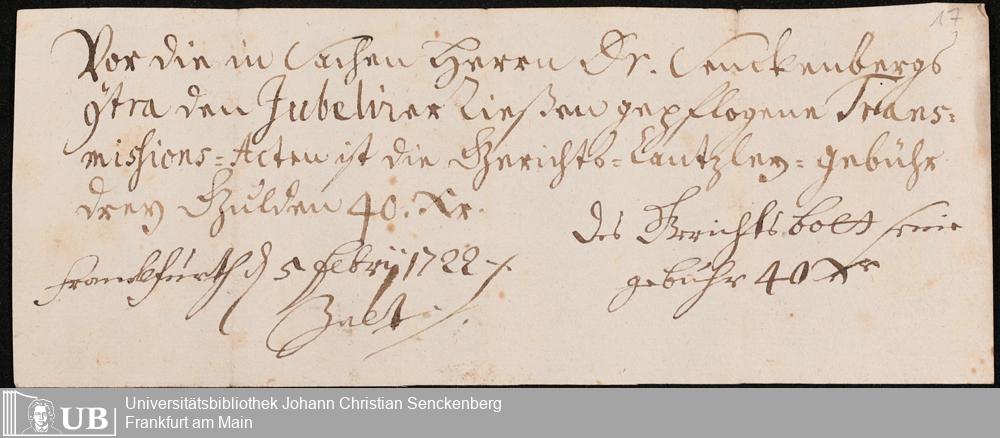 17
Vor die in Sachen Herrn Dr. Senckenbergs
ɔtra den Jubelirer Ließen gepflogene Trans=
missions=Acten ist die Gerichts=Cantzley=gebühr
drey Gulden 40. Xr.
des Gerichts bott seine
gebühr 40 Xr
Franckfurth d 5 Febrij 1722
Zalt
UB
Universitätsbibliothek Johann Christian Senckenberg
Frankfurt am Main